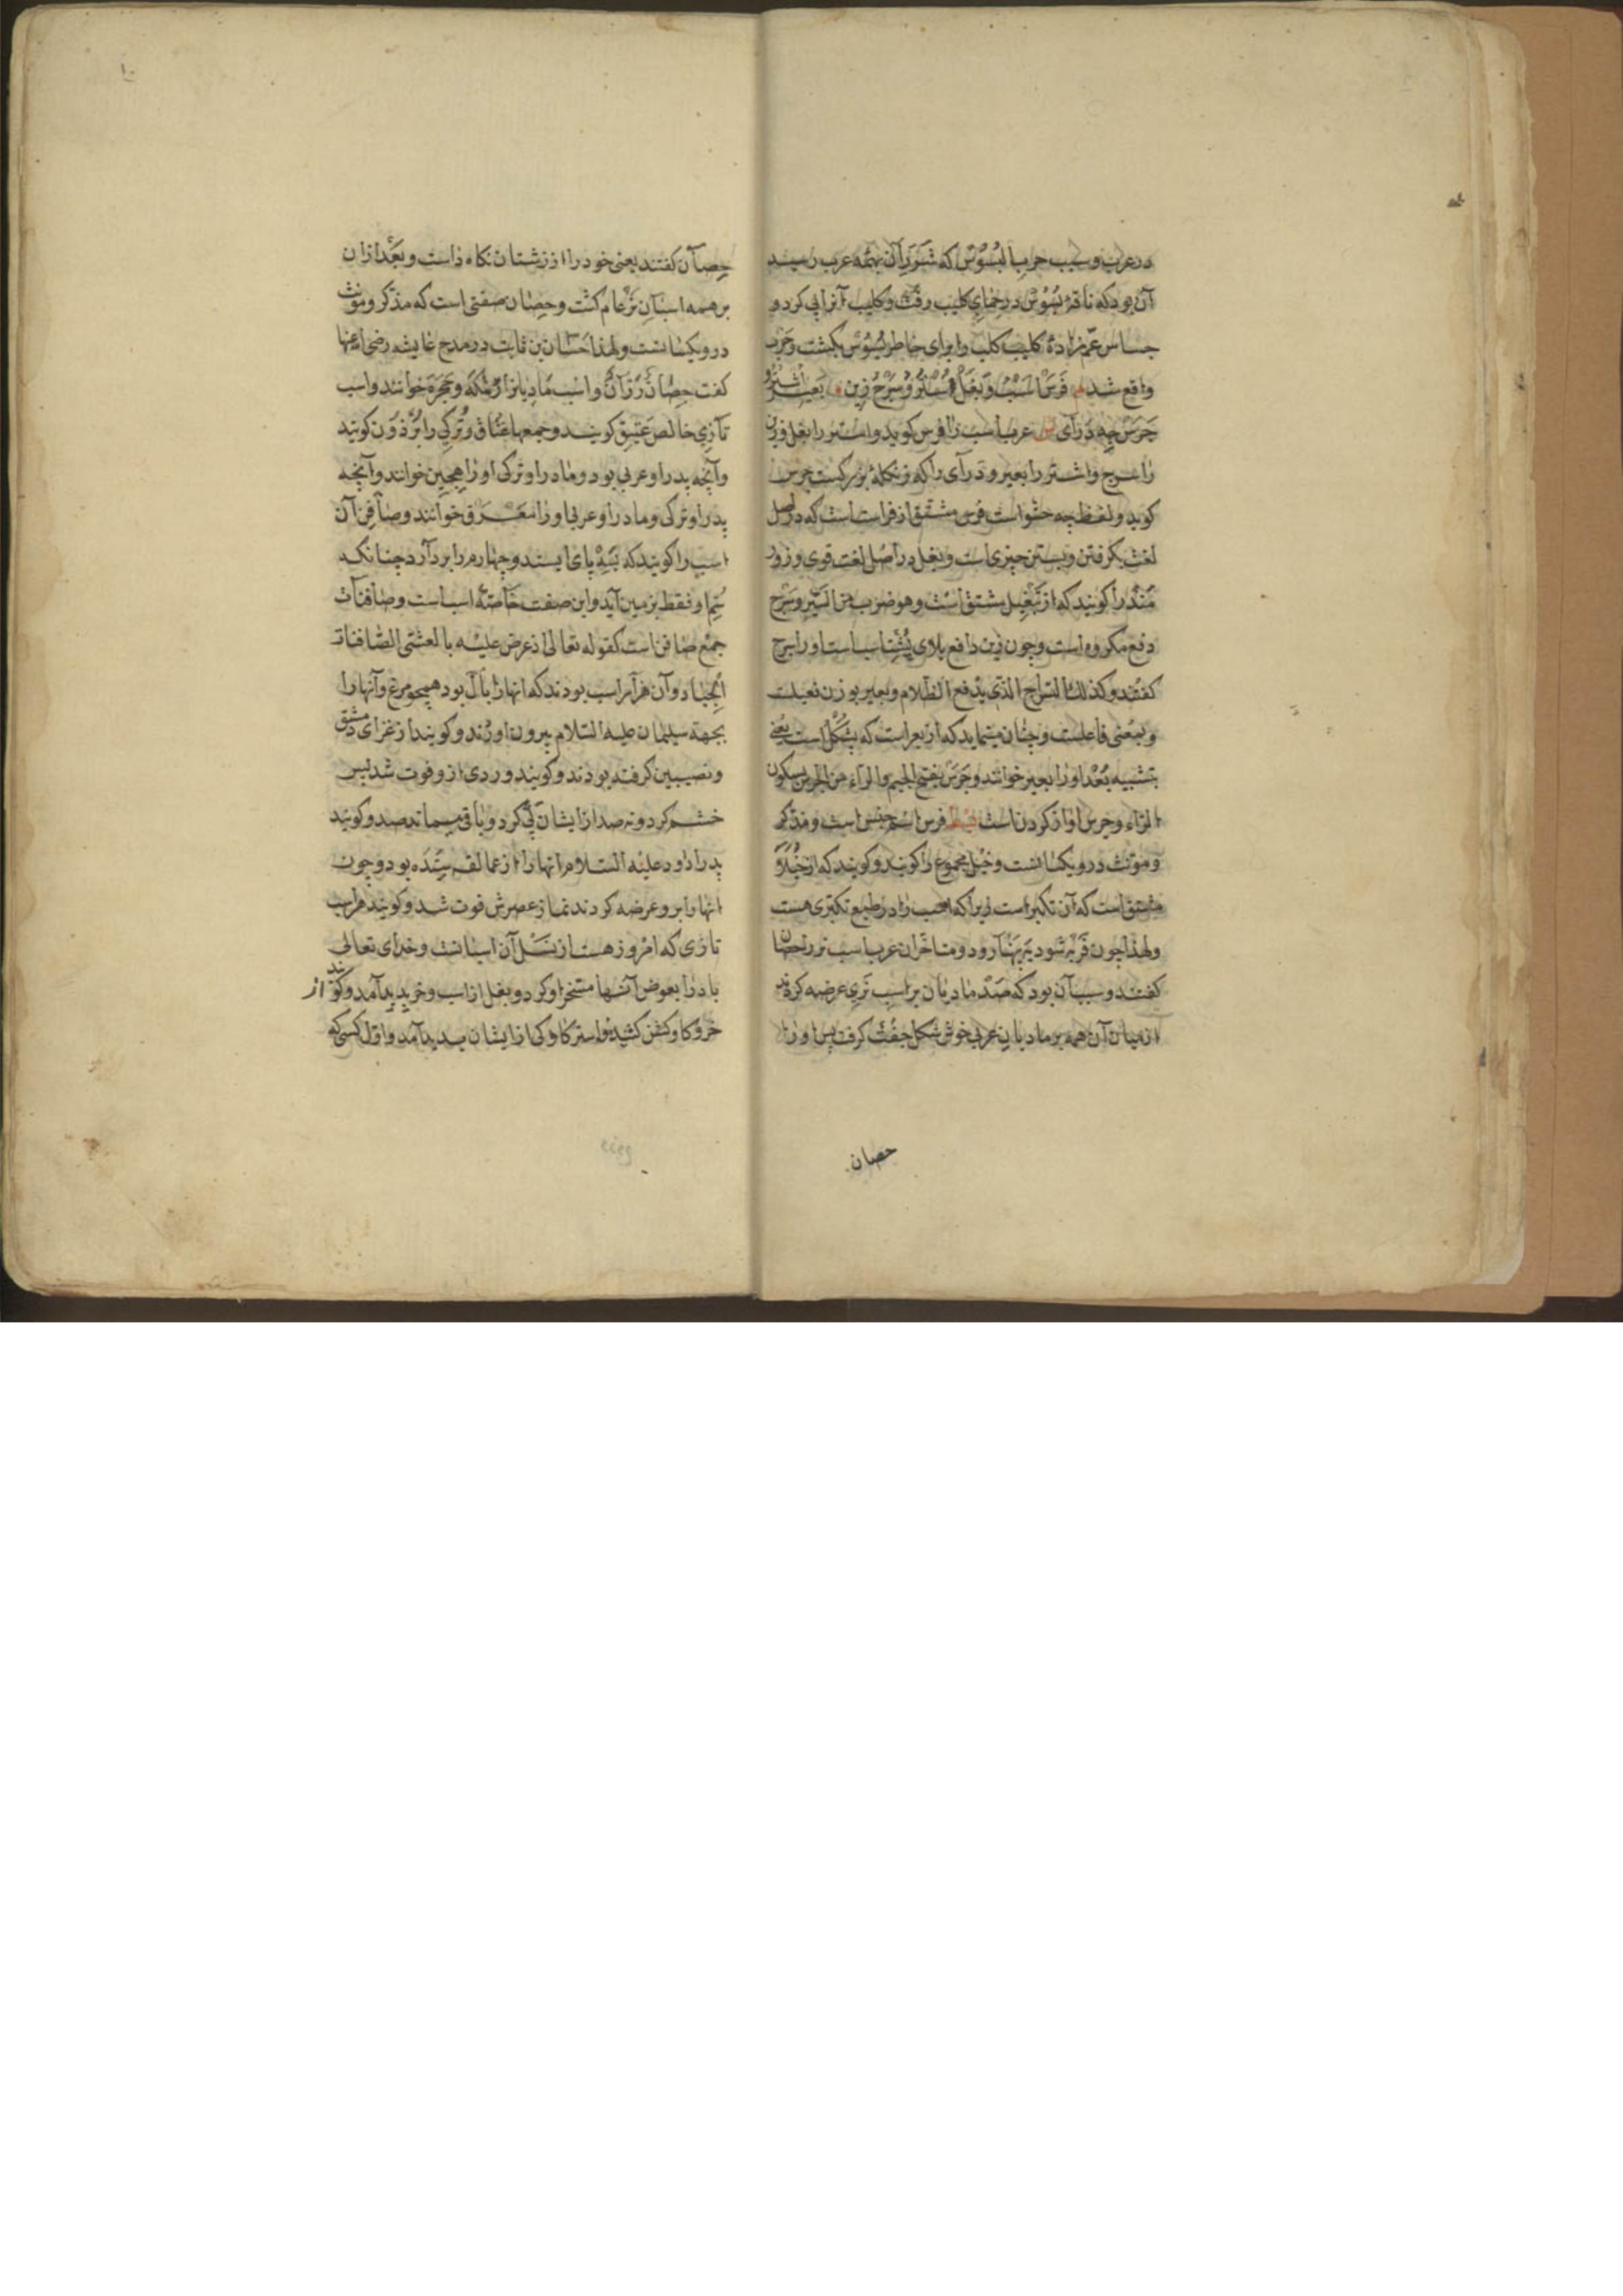 در عرب و سبب حرب البسوس که شرر آن بهمه عرب رسید
آن بود که ناقهٔ بسوس در حمای کلیب رفت و کلیب آنرا پی کرد و
جساس عمزادهٔ کلیب کلیب را برای خاطر بسوس بکشت و حرب
واقع شد فَرَس اسب و بَغل اُستُر و سَرج زین بعیر اُشتُر و
جَرَس چه دَرای عرب اسب را فرس کوید و استر را بغل و زین
را سرج و اشتر را بعیر و درای را که زنکلهٔ بزرکست جرس
کوید و لفظ چه حشو است فرس مشتق از فراست است که در اصل
لغت بکرفتن و بستن چیزی است و بغل در اصل لغت قوی و زور
مند را کویند که از تبغیل مشتق است و هو ضرب من السیر و سرج
دفع مکروه است و چون زین دافع بلای پشت اسب است او را سرج
کفتند و کذلک السراج الذی یدفع الظلام و بعیر بوزن فعیلست
و بمعنی فاعلست و چنان مینماید که از بعر است که پشکل است یعنی
بتشبیه بُعد او را بعیر خوانند و جرس بفتح الجیم و الراء من الجرس بسکون
الراء و جرس اواز کردن است فرس اسم جنس است و مذکر
و مونث در و یکسانست و خیل مجموع را کویند و کویند که از خیلاء
مشتق است که آن تکبر است زیرا که اسب را در طبع تکبری هست
و لهذا چون فربه شود پهنا رود و متاخران عرب اسب نر را حصان
کفتند و سبب آن بود که صد مادیان بر اسب نری عرضه کردند
از میان آن همه بر مادیان عربی خوش شکل جفت کرفت پس او را
حصان
۱۰
حِصان کفتند یعنی خود را از زشتان نکاه داست و بعد ازان
بر همه اسبان نر عام کشت و حصان صفتی است که مذکر و مونث
در و یکسانست و لهذا حسان بن ثابت در مدح عایشه رضی عنها
کفت حصان رزان و اسب مادیانرا رمکه و حجره خوانند و اسب
تازی خالص عتیق کویند و جمعها عتاق و ترکی را برذون کویند
و آنچه پدر او عربی بود و مادر او ترکی او را هجین خوانند و آنچه
پدر او ترکی و مادر او عربی او را مقرق خوانند و صافن آن
اسب را کویند که بسه پای ایستد و چهارم را بردارد چنانکه
سُم او فقط بزمین آید و این صفت خاصهٔ اسب است و صافنات
جمع صافن است کقوله تعالی اذ عرض علیه بالعشی الصافنات
الجیاد و آن هزار اسب بودند که انها را بال بود همچو مرغ و آنها را
بجهة سلیمان علیه السلام بیرون اوردند و کویند از غزای دمشق
و نصیبین کرفته بودند و کویند وردی از و فوت شد پس
خشم کرد و نه صد از ایشان پی کرد و باقی میماند صد و کویند
پدر او داود علیه السلام انها را از عمالقه ستده بود و چون
انها را بر و عرضه کردند نماز عصرش فوت شد و کویند هر اسب
تازی که امروز هست از نسل آن اسبانست و خدای تعالی
باد را بعوض آنها مسخر او کرد و بغل از اسب و خر پدید آمد و کویند از
خر و کاو کشن کشیدند استر کاوکی از ایشان پدید آمد و اول کسی که